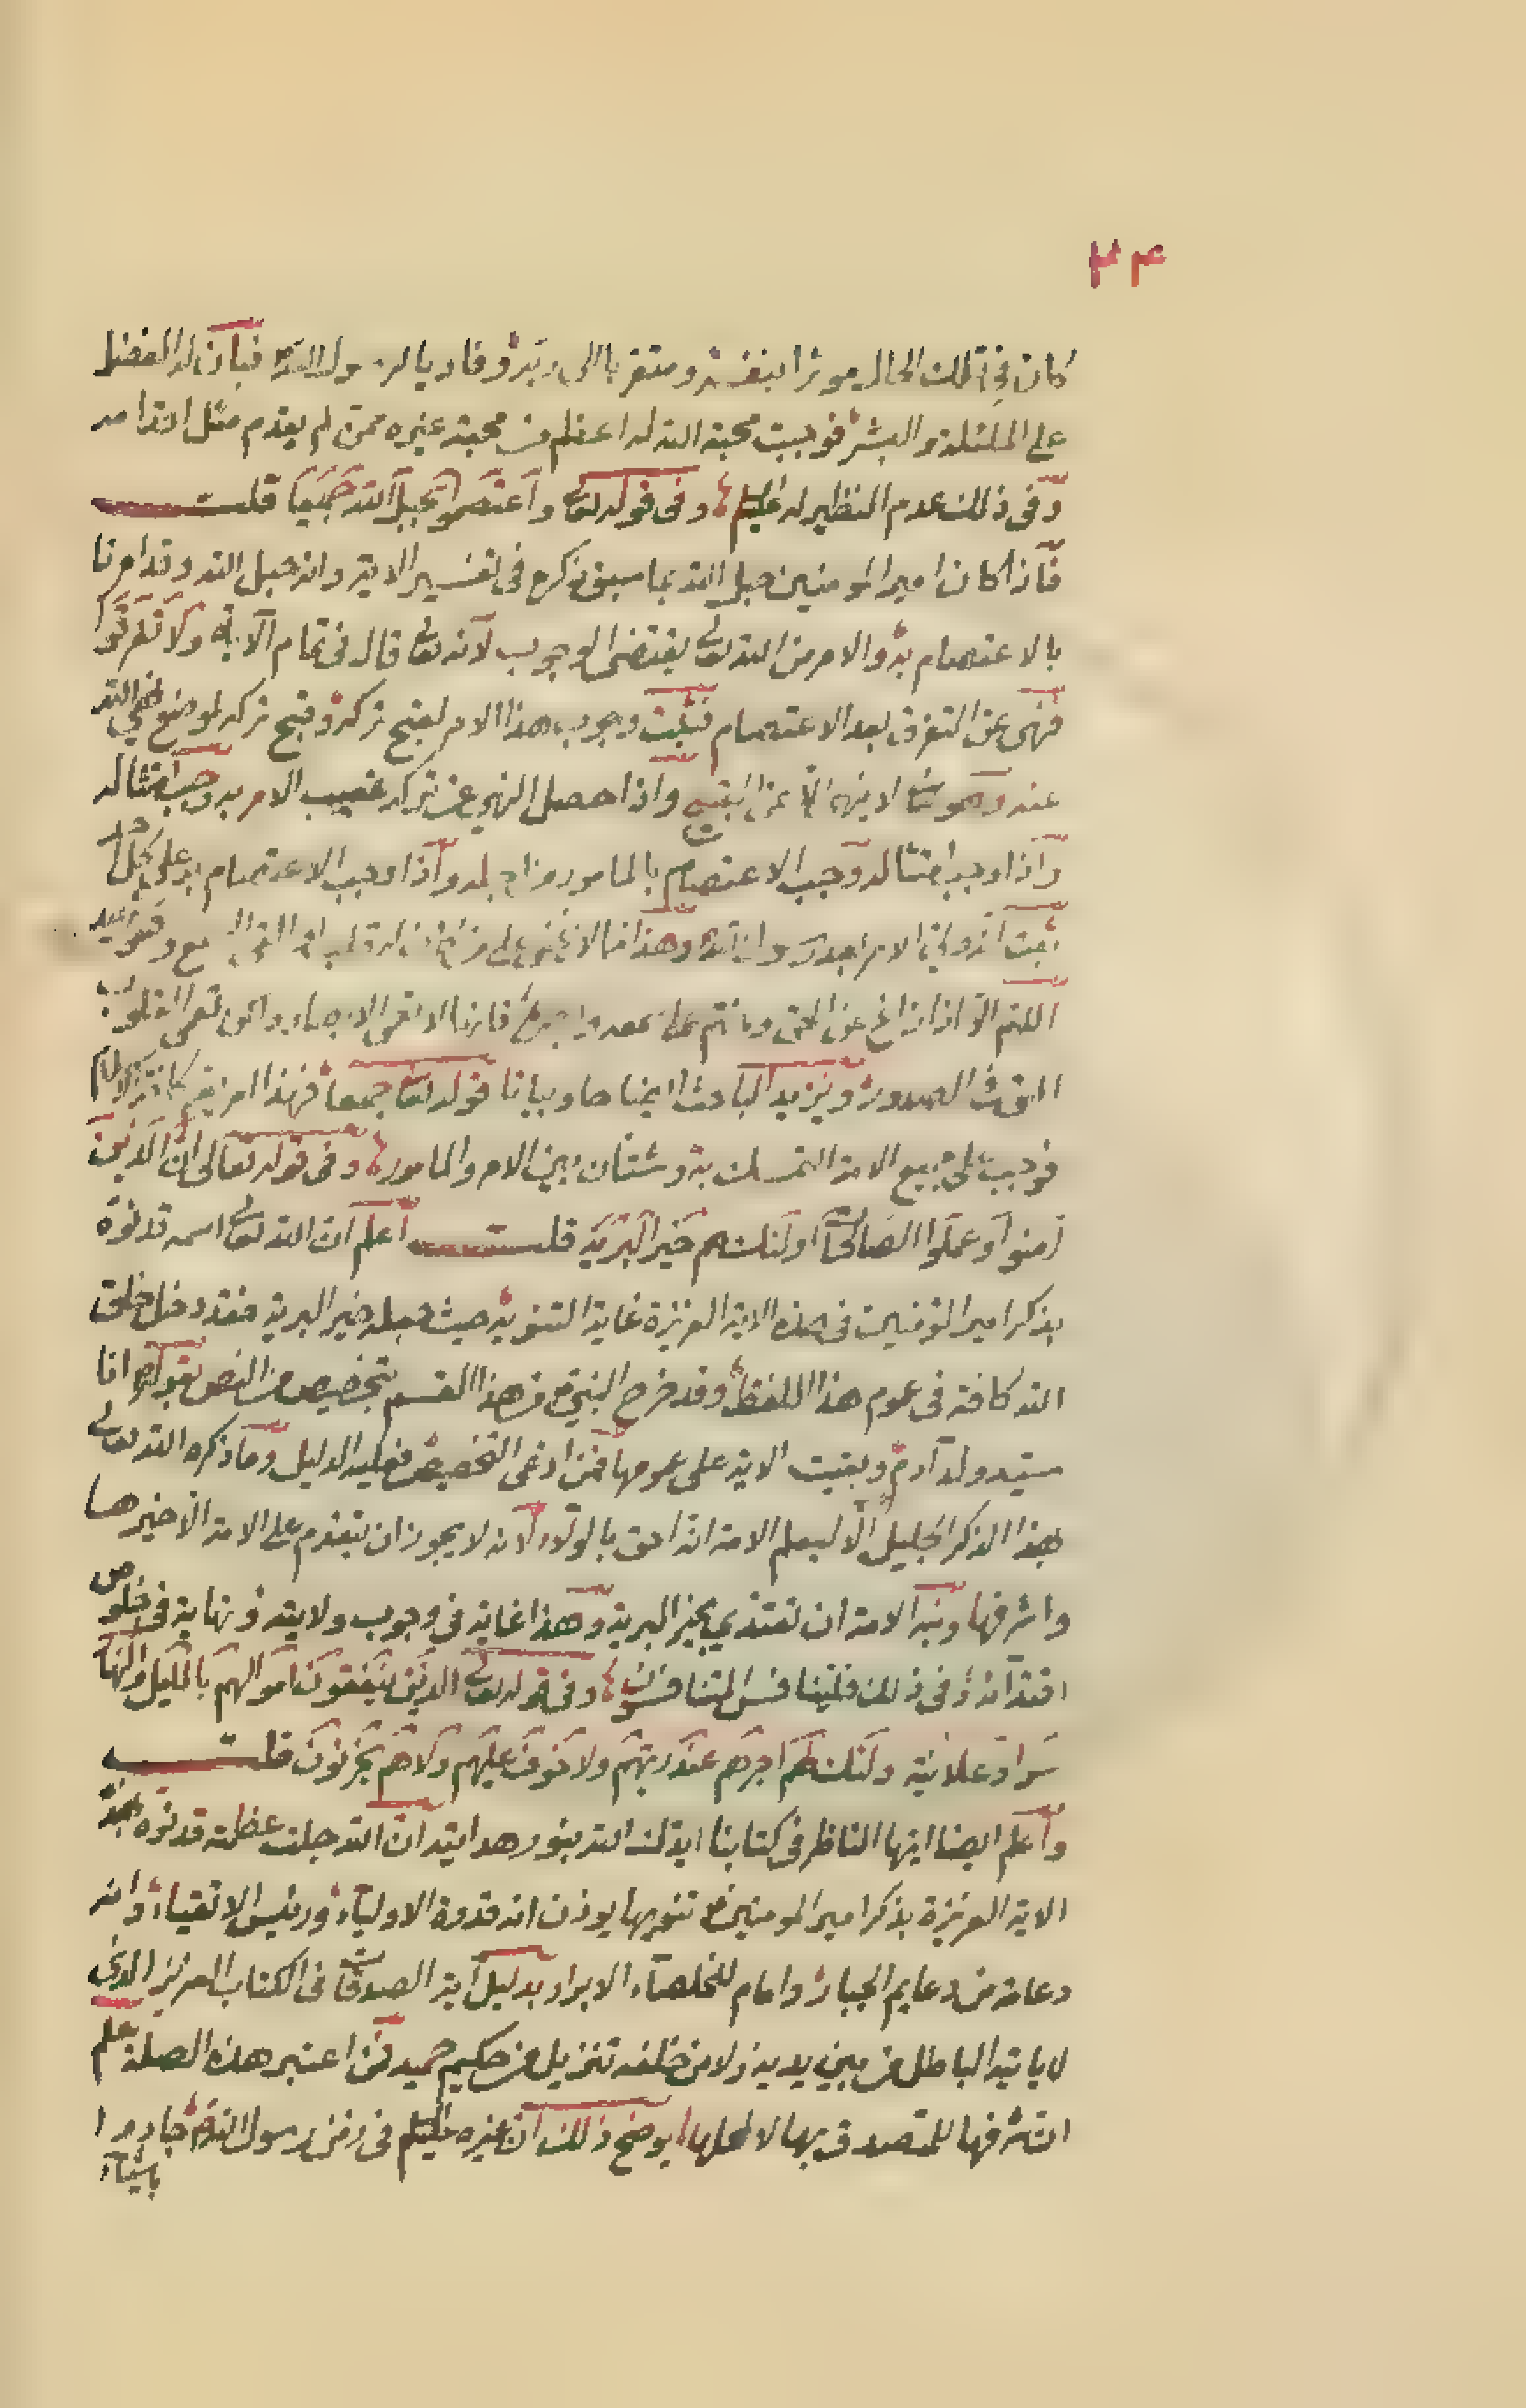 ٣٤
كان فى تلك الحال موثرا بنفسه ومتقربا الى ربه وفاديا لرسول الله فبان له الفضل
على الملئكة والبشر فوجبت محبة الله له اعظم من محبة غيره ممن لم يقدم مثل اقدامه
وفى ذلك عدم النظير له وفى قوله تعا واعتصموا بحبل الله جميعا قلت
فاذا كان امير المومنين حبل الله بما سبق ذكره فى تفسير الاية وانه حبل الله وقد امرنا
بالاعتصام به والامر من الله تعالى يقتضى الوجوب لانه تعا قال فى تمام الآية ولا تفرقوا
فنهى عن التفرق بعد الاعتصام فثبت وجوب هذا الامر لقبح تركه وقبح تركه لموضع نهى الله
عنه وهو تعا لا ينهى الا عن القبيح واذا حصل النهى عن تركه الامر به وجب امتثاله
واذا وجب امتثاله وجب الاعتصام بالمامور واذا وجب الاعتصام به على كل
ثبت انه ولى الامر بعد رسول الله وهذا ما لا يخفى على من كان له قلب او القى السمع وهو شهيد
اللهم الا اذا زاغ عن الحق فانها لا تعمى الابصار ولكن تعمى القلوب
التى فى الصدور ويزيد الباحث ايضاحا وبيانا قوله تعا جميعا فهذا امر
فوجب على جميع الامة التمسك به وشتان بين الامر والمامور وفى قوله تعالى ان الذين
آمنوا وعملوا الصالحات اولئك هم خير البرية قلت اعلم ان الله تعالى اسمه قد نوه
بذكر امير المؤمنين فى هذه الاية العزيزة غاية التنويه حيث جعله خير البرية فقد دخل خلق
الله كافة فى عموم هذا اللفظ وقد خرج النبى من هذا القسم بتخصيص من النص بقوله انا
سيد ولد آدم وبقيت الاية على عمومها فمن ادعى التخصيص فعليه الدليل وما ذكره الله تعالى
بهذا الذكر الجليل الا ليعلم الامة انه احق بالولاء لانه لا يجوز ان يتقدم على الامة الا خيرها
واشرفها ونبه الامة ان تقتدي بخير البرية وهذا غاية فى وجوب ولايته ونهاية فى خلوص
اقتدائه وفى ذلك فليتنافس المتنافسون وفى قوله تعالى الذين ينفقون اموالهم بالليل والنهار
سرا وعلانية ولئك لهم اجرهم عند ربهم ولا خوف عليهم ولا هم يحزنون قلت
واعلم ايضا ايها الناظر فى كتابنا ايدك الله بنور هدايته ان الله جلت عظمته قد نوه بهذه
الاية العزيزة بذكر امير المومنين تنويها يوذن انه قدوة الاولياء ورئيس الاتقياء وانه
دعامة من دعايم الجبار وامام للخلصاء الابرار بدليل آية الصدقات فى الكتاب العزيز الذى
لا ياتيه الباطل من بين يديه ولا من خلفه تنزيل من حكيم حميد فمن اعتبر هذه الصلة علم
ان شرفها للمتصدق بها لا لمحلها يوضح ذلك ان غيره فى زمن رسول الله جادوا
باشياء